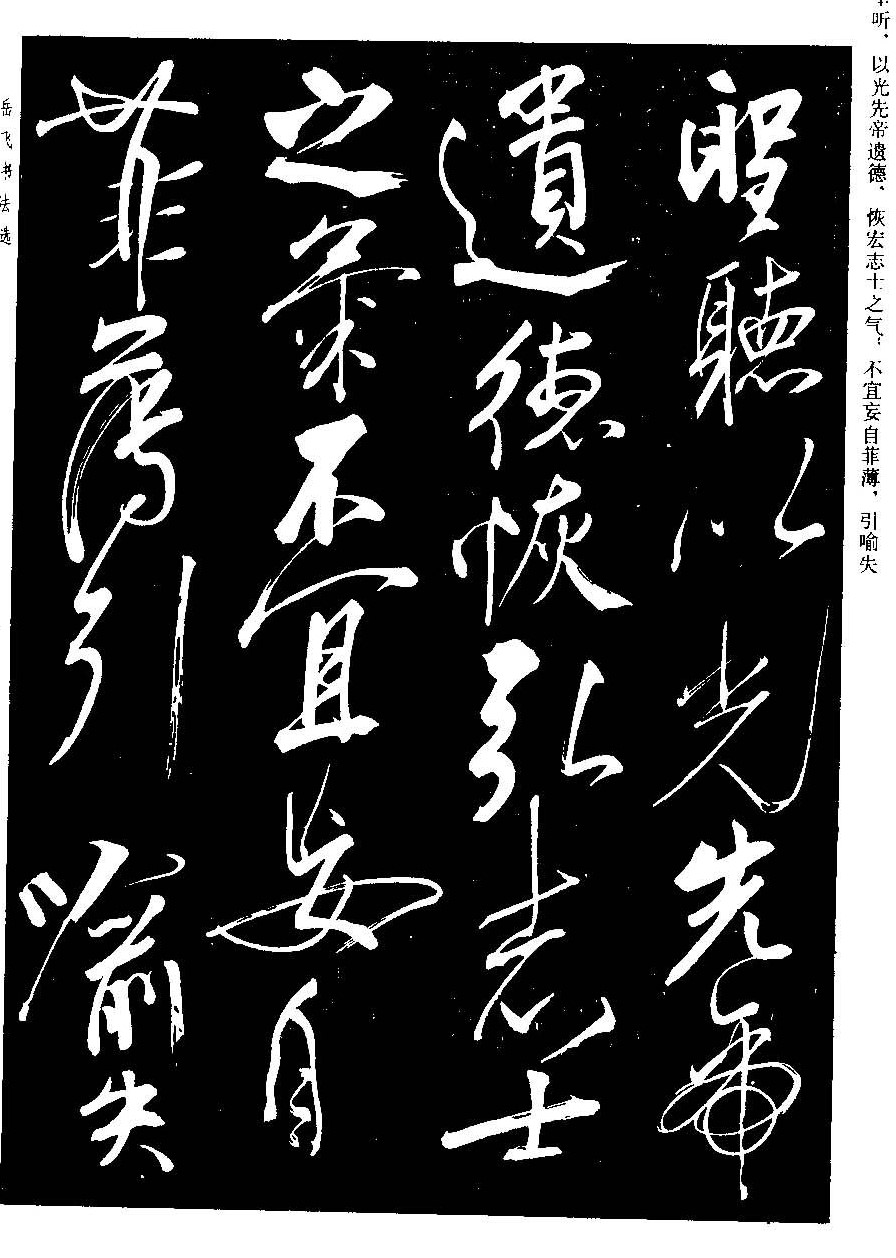 听，以光先帝遗德，恢宏志士之气；不宜妄自菲薄，引喻失
聖聽以光先帝
遺德恢弘志士
之氣不宜妄自
菲薄引喻失
岳飞书法选